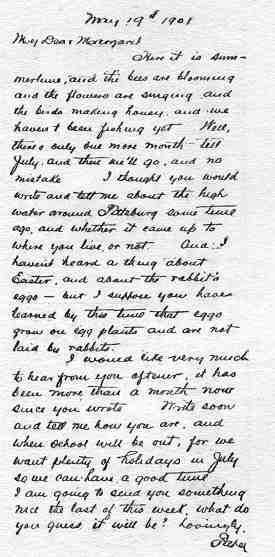 May 19th 1901
My Dear Margaret
Here it is sum-
mertime, and the bees are blooming
and the flowers are singing and
the birds making honey, and we
haven't been fishing yet Well,
there's only one more month till
July, and then we'll go, and no
mistake I thought you would
write and tell me about the high
water around Pittsburg some time
ago, and whether it came up to
where you live, or not. And I
haven't heard a thing about
Easter, and about the rabbit's
eggs — but I suppose you have
learned by this time that eggs
grow on egg plants and are not
laid by rabbits.
I would like very much
to hear from you oftener, it has
been more than a month now
since you wrote. Write soon
and tell me how you are, and
when school will be out, for we
want plenty of holidays in July
so we can have a good time
I am going to send you something
nice the last of this week, what do
you guess it will be? Lovingly,